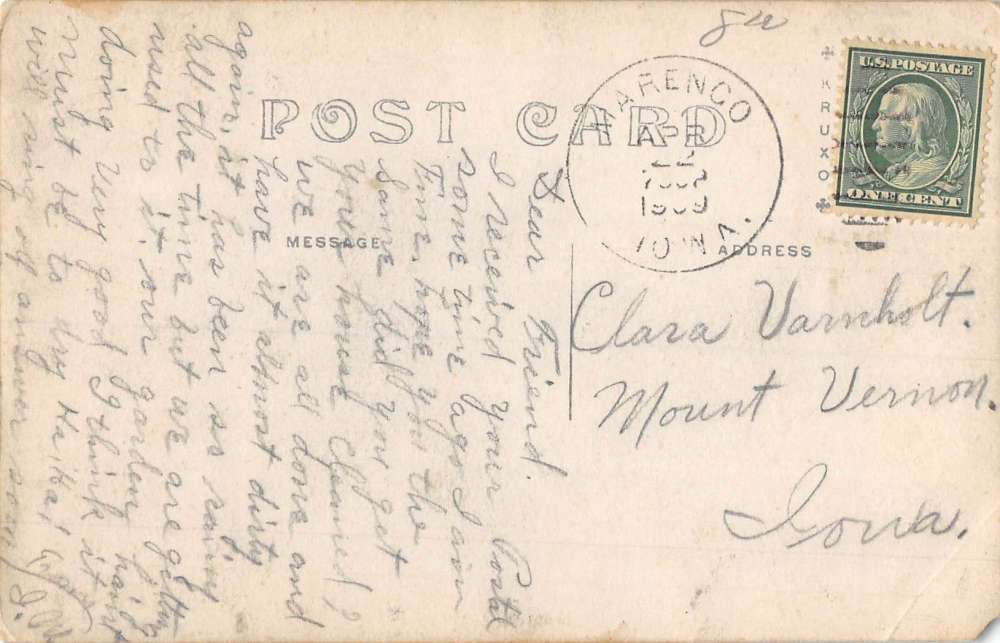 8
POST CARD
MARENGO
APR
22
1909
IOWA
KRUXO
U.S. POSTAGE
ONE CENT
MESSAGE
ADDRESS
Clara Varnholt.
Mount Vernon.
Iowa.
Dear Friend.
I received your Postal
some time ago I am
fine, hope you the
same did you get
your house cleaned?
we are all done and
have it almost dirty
again, it has been so rainy
all the time but we are getting
used to it. our garden haint
doing very good I think it
must be to dry Ha! Ha!
will ring off answer soon